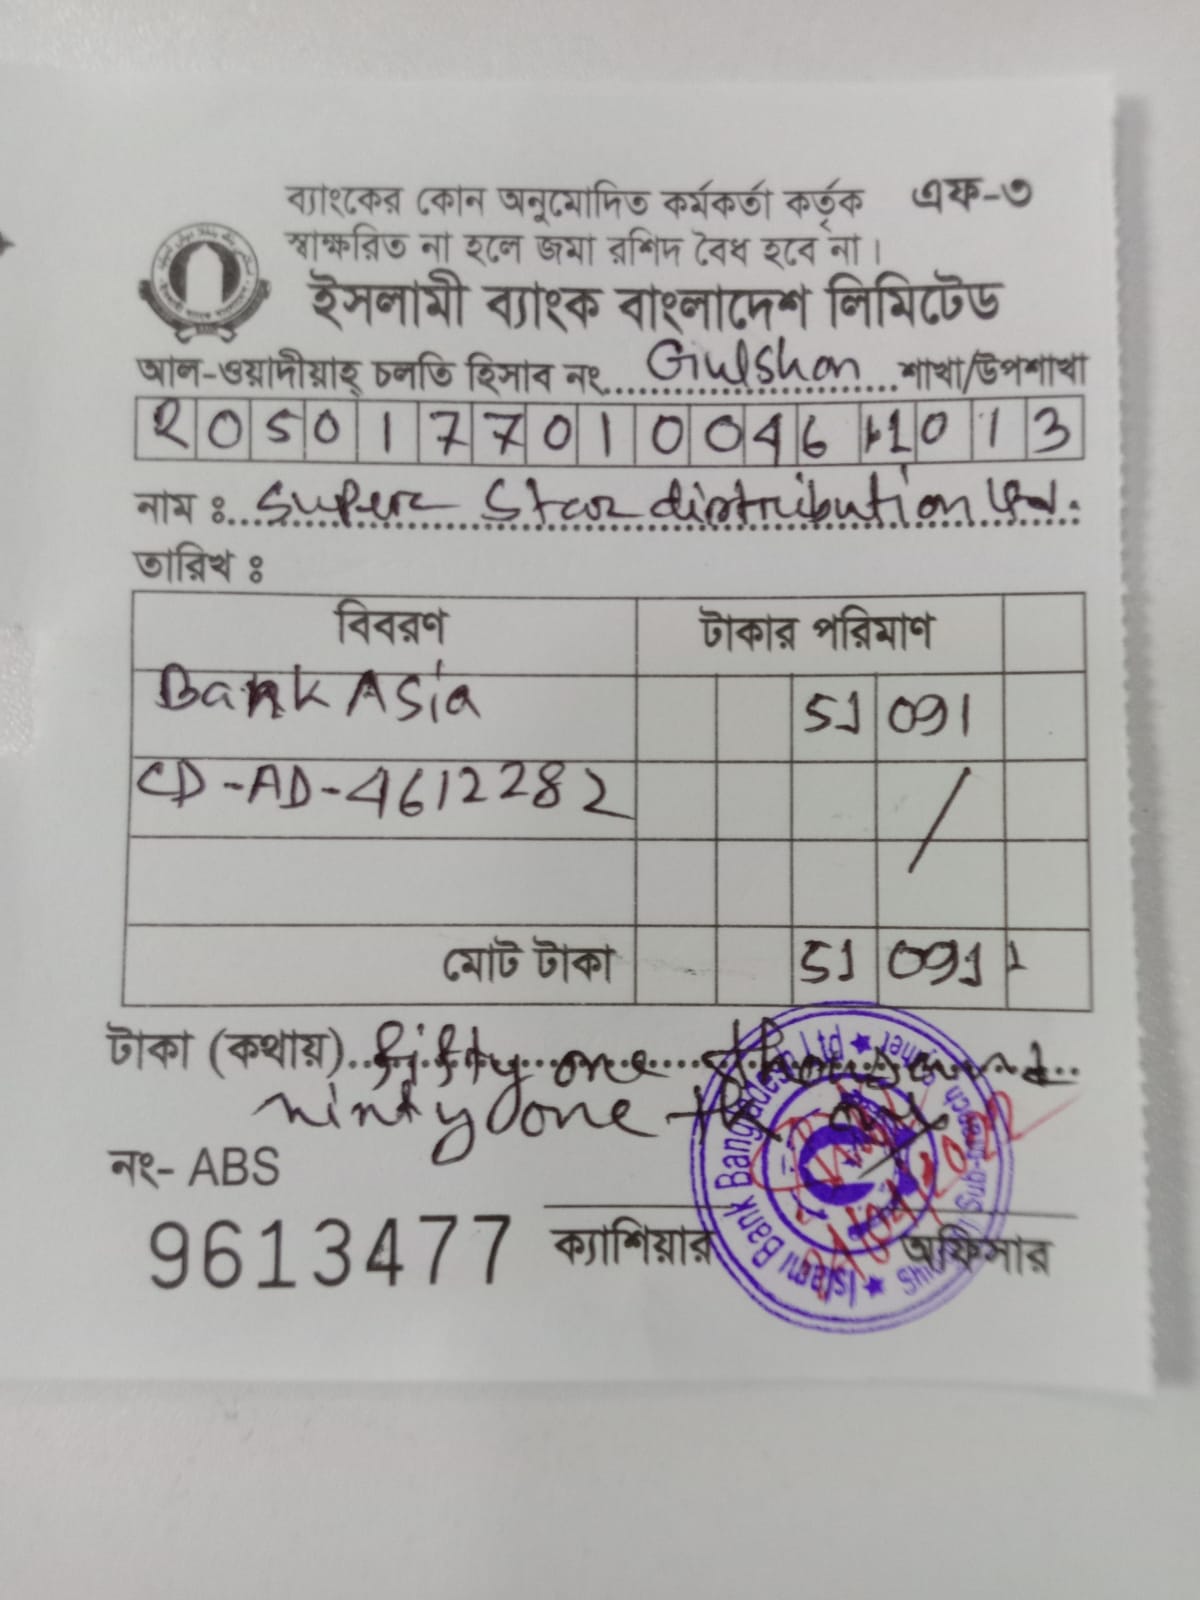 ব্যাংকের কোন অনুমোদিত কর্মকর্তা কর্তৃক এফ-৩
স্বাক্ষরিত না হলে জমা রশিদ বৈধ হবে না।
ইসলামী ব্যাংক বাংলাদেশ লিমিটেড
আল-ওয়াদীয়াহ্ চলতি হিসাব নং Gulshan শাখা/উপশাখা
2 0 5 0 1 7 7 0 1 0 0 4 6 1 0 1 3
নাম ঃ Super Star distribution Ltd.
তারিখ ঃ
বিবরণ টাকার পরিমাণ
Bank Asia 51 091
CD-AD-4612282 /
মোট টাকা 51 091
টাকা (কথায়) fifty one thousand
ninty one tk only
নং- ABS
9613477 ক্যাশিয়ার অফিসার
Islami Bank Bangladesh